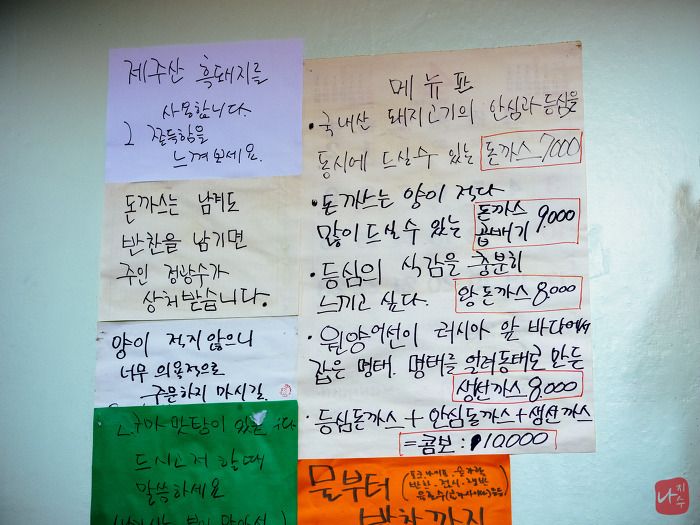 제주산 흑돼지를
사용합니다.
그 쫄득함을
느껴보세요.
돈까스는 남겨도
반찬을 남기면
주인 정광수가
상처받습니다.
양이 적지않으니
너무 의욕적으로
주문하지 마시길.
고구마 맛탕이 있습니다
드시고저 할때
말씀하세요
메뉴판
• 국내산 돼지고기의 안심과 등심을
동시에 드실수 있는 돈까스 7000
• 돈까스는 양이 적다
많이드실수 있는 돈까스 곱배기 9.000
• 등심의 식감을 충분히
느끼고 싶다. 왕돈까스 8.000
• 원양어선이 러시아 앞 바다에서
잡은 명태. 명태를 얼려 동태로 만든
생선까스 8.000
• 등심돈까스 + 안심돈까스 + 생선까스
= 콤보 : 10,000
물부터
반찬까지
나지수